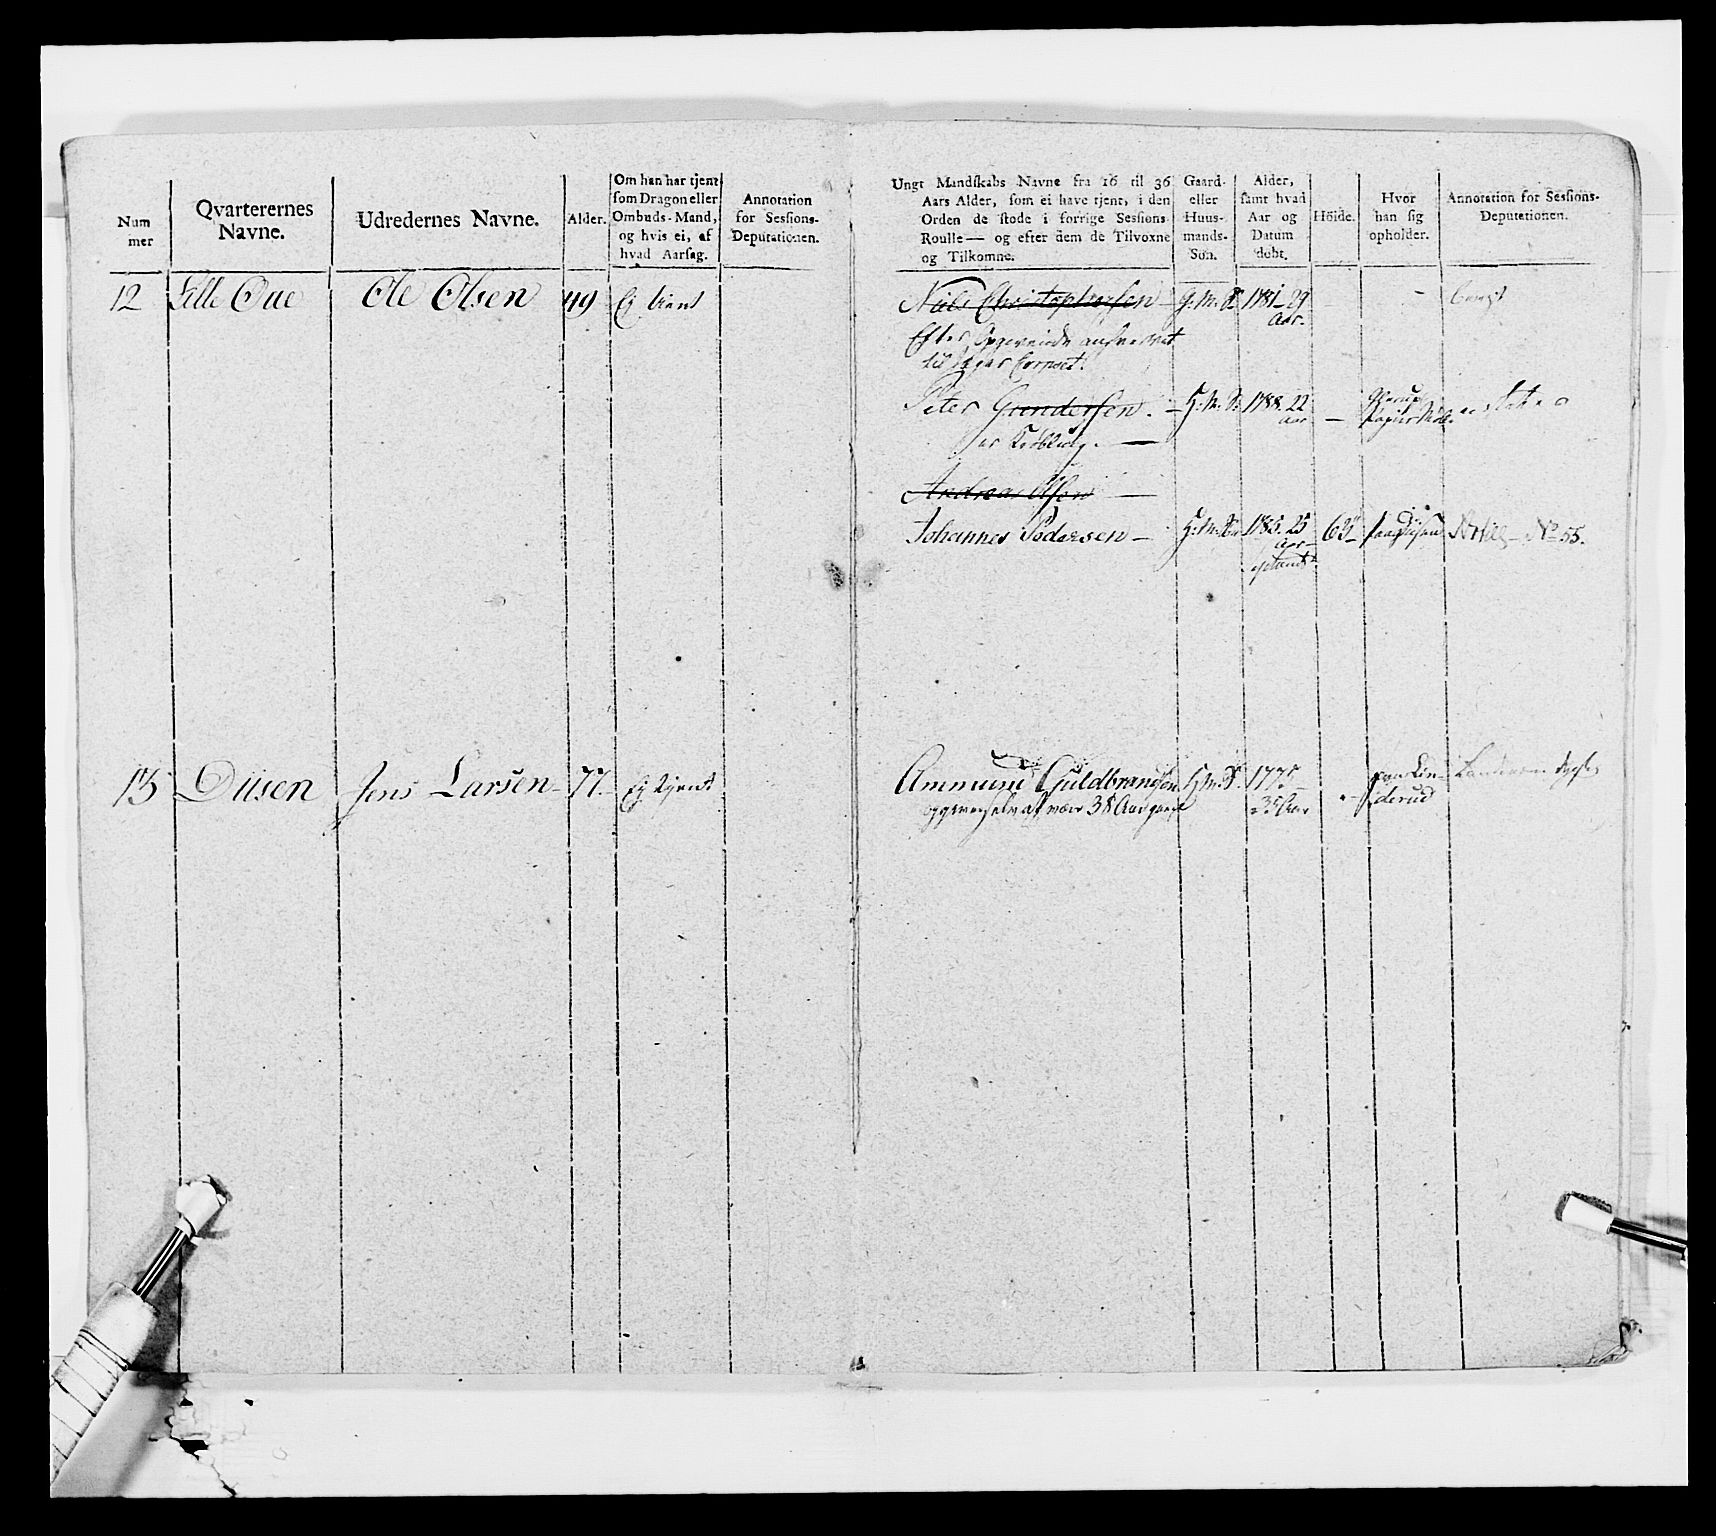 Num
mer
Qvarterernes
Navne.
Udredernes Navne.
Alder.
Om han har tjent
som Dragon eller
Ombuds-Mand,
og hvis ei, af
hvad Aarsag.
Annotation
for Sessions-
Deputationen.
Ungt Mandskabs Navne fra 16 til 36
Aars Alder, som ei have tjent, i den
Orden de stode i forrige Sessions-
Roulle— og efter dem de Tilvoxne
og Tilkomne.
Gaard-
eller
Huus-
mands-
Søn.
Alder,
samt hvad
Aar og
Datum
debt.
Høide.
Hvor
han sig
opholder.
Annotation for Sessions-
Deputationen.
12 Lille Oue Ole Olsen 49 Ej tient
Niels Christophersen G. M. S. 1781-29
Aar.
Efter Opgivende
til Jæger Corpset.
Peter Gundersen. H. M. S. 1788. 22
Aar
Andreas Olsen
Johannes Pedersen H. M. S. 1785. 25 63 No 55.
Aar
13 Diisen Jens Larsen 77 Ej tjent
Ammund Guldbrandsen H. M. S. 1775
35 Aar
at være 38 Aar